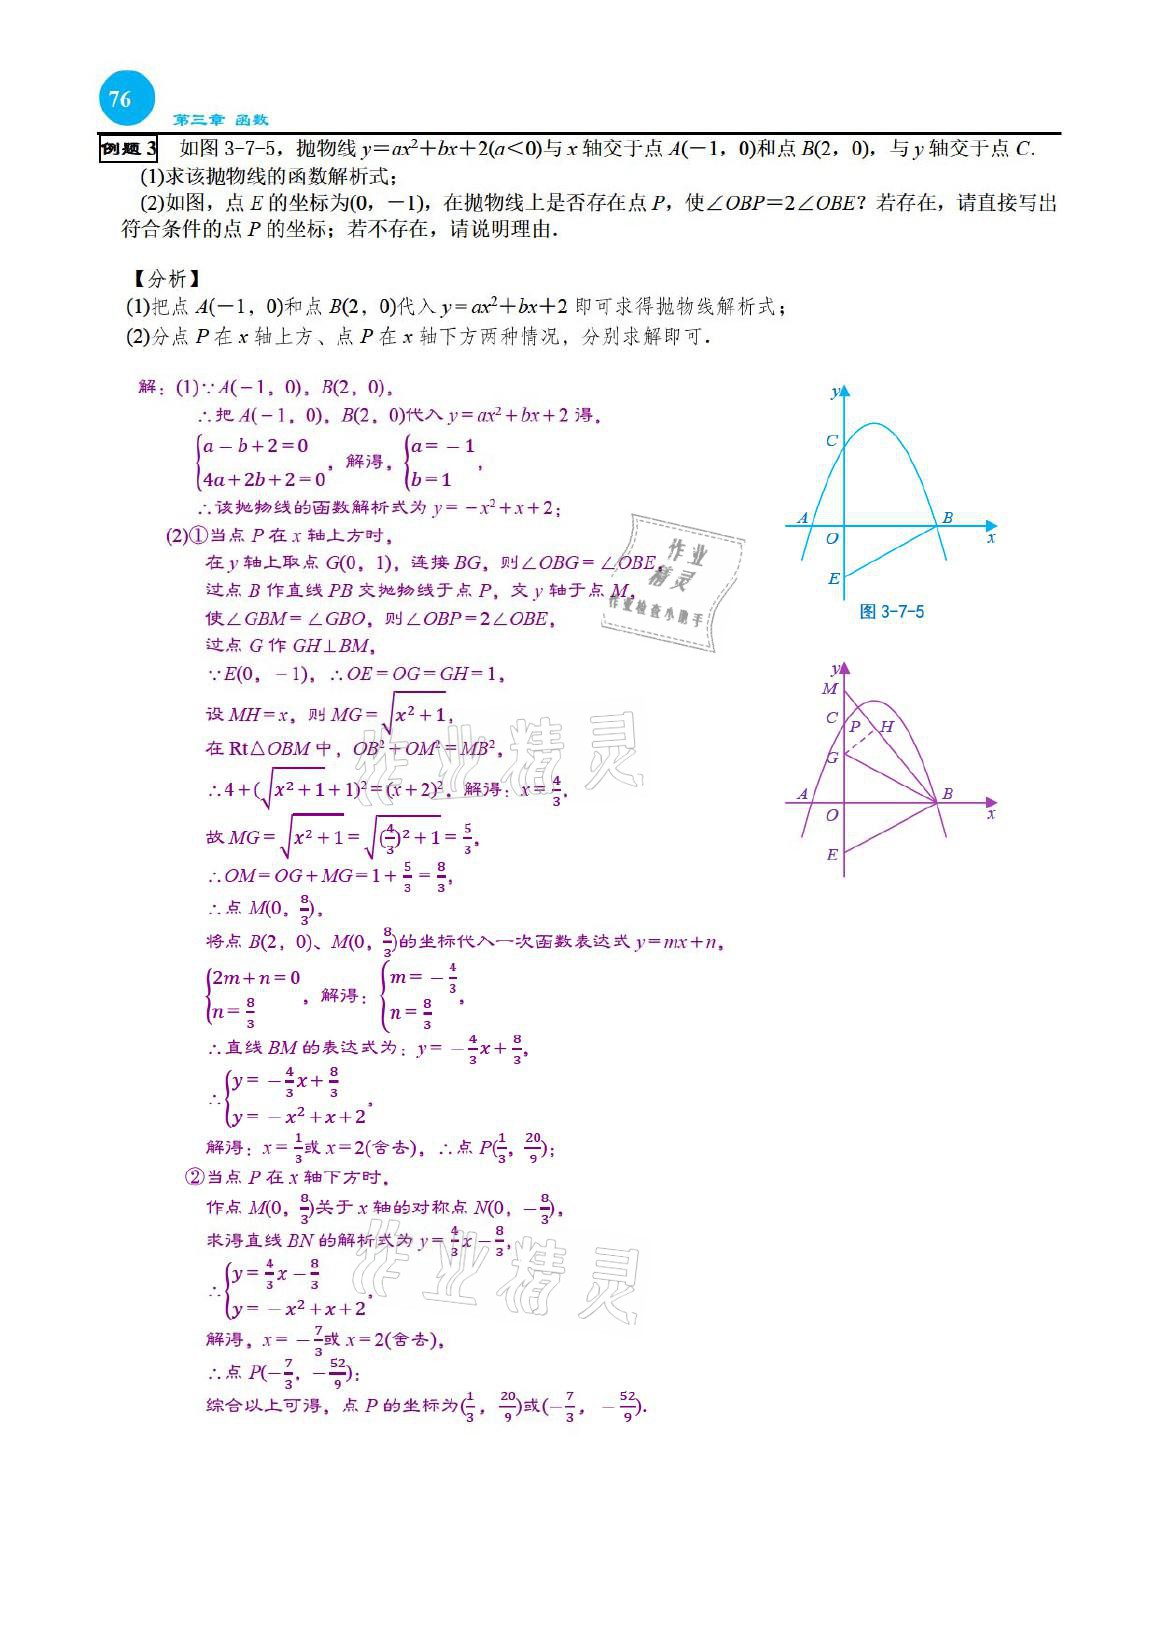 76
第三章 函数
例题 3 如图 3-7-5，抛物线 y＝ax²＋bx＋2(a＜0)与 x 轴交于点 A(－1，0)和点 B(2，0)，与 y 轴交于点 C.
(1)求该抛物线的函数解析式；
(2)如图，点 E 的坐标为(0，－1)，在抛物线上是否存在点 P，使∠OBP＝2∠OBE？若存在，请直接写出
符合条件的点 P 的坐标；若不存在，请说明理由．
【分析】
(1)把点 A(－1，0)和点 B(2，0)代入 y＝ax²＋bx＋2 即可求得抛物线解析式；
(2)分点 P 在 x 轴上方、点 P 在 x 轴下方两种情况，分别求解即可．
解：(1)∵A(－1，0)，B(2，0)，
∴把 A(－1，0)，B(2，0)代入 y＝ax²＋bx＋2 得，
{a－b＋2＝0，4a＋2b＋2＝0，解得，{a＝－1，b＝1，
∴该抛物线的函数解析式为 y＝－x²＋x＋2；
(2)①当点 P 在 x 轴上方时，
在 y 轴上取点 G(0，1)，连接 BG，则∠OBG＝∠OBE，
过点 B 作直线 PB 交抛物线于点 P，交 y 轴于点 M，
使∠GBM＝∠GBO，则∠OBP＝2∠OBE，
过点 G 作 GH⊥BM，
∵E(0，－1)，∴OE＝OG＝GH＝1，
设 MH＝x，则 MG＝√(x²＋1)，
在 Rt△OBM 中，OB²＋OM²＝MB²，
∴4＋(√(x²＋1)＋1)²＝(x＋2)²，解得：x＝4/3，
故 MG＝√(x²＋1)＝√((4/3)²＋1)＝5/3，
∴OM＝OG＋MG＝1＋5/3＝8/3，
∴点 M(0，8/3)，
将点 B(2，0)、M(0，8/3)的坐标代入一次函数表达式 y＝mx＋n，
{2m＋n＝0，n＝8/3，解得：{m＝－4/3，n＝8/3，
∴直线 BM 的表达式为：y＝－4/3x＋8/3，
∴{y＝－4/3x＋8/3，y＝－x²＋x＋2，
解得：x＝1/3或 x＝2(舍去)，∴点 P(1/3，20/9)；
②当点 P 在 x 轴下方时，
作点 M(0，8/3)关于 x 轴的对称点 N(0，－8/3)，
求得直线 BN 的解析式为 y＝4/3x－8/3，
∴{y＝4/3x－8/3，y＝－x²＋x＋2，
解得，x＝－7/3或 x＝2(舍去)，
∴点 P(－7/3，－52/9)；
综合以上可得，点 P 的坐标为(1/3，20/9)或(－7/3，－52/9)．
y
C
A
B
O
x
E
图 3-7-5
y
M
C
P
H
G
A
B
O
x
E
作业
精灵
作业检查小助手
作业精灵
作业精灵